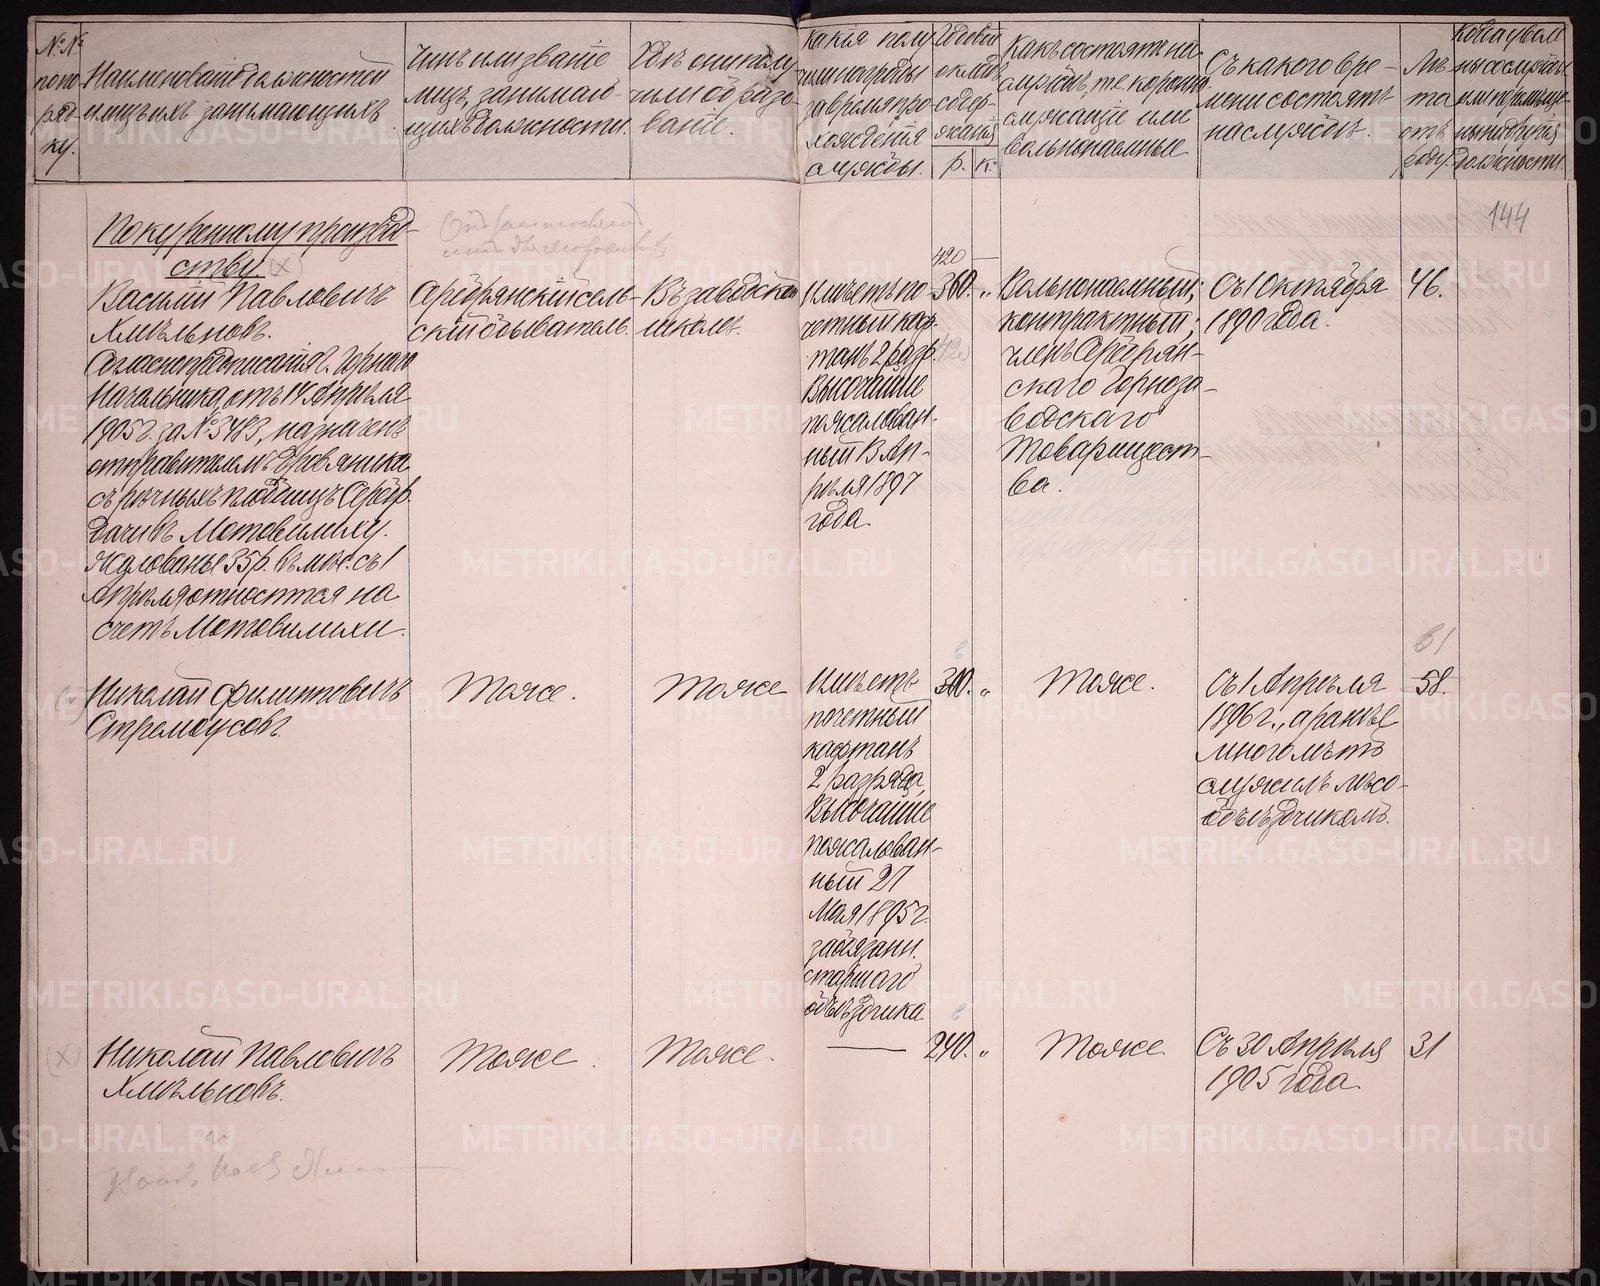 №№ по по ряд- ку.
Наименованіе должностей
и лицъ ихъ занимающихъ.
Чинъ или званіе
лицъ, занимаю-
щихъ должности.
Гдѣ они полу-
чили образо-
ваніе.
Какія полу-
чили награды
за время про-
хожденія
службы.
Годовой
окладъ
содер-
жанія
р. к.
Какъ состоятъ на
службѣ, т.е. коронно-
служащіе или
вольнонаемные
Съ какого вре-
мени состоятъ
на службѣ.
Лѣ-
та
отъ
роду.
Когда увол
ны со службы
или перемѣще-
ны на другія
должности.
144
По куренному производ-
ству. (х)
Василій Павловичъ
Хмѣльновъ.
Согласно предписанія г. Горнаго
Начальника, отъ 14 Апрѣля
1905 г. за № 3483, назначенъ
отправителемъ дровяника
съ рѣчныхъ плотбищъ Серебр.
дачи въ Мотовилиху.
Жалованье 35 р. въ мѣс. съ 1
Апрѣля относится на
счетъ Мотовилихи.
Серебрянскій сель-
скій обыватель.
Въ заводской
школѣ.
Имѣетъ по-
четный каф-
танъ 2 разр.
Высочайше
пожалован-
ный В Ап-
рѣля 1897
года.
420 —
360. „
420
Вольнонаемный;
контрактный;
членъ Серебрян-
скаго Горноза-
водскаго
Товарищест-
ва.
Съ 1 Октября
1890 года.
46.
Николай Филипповичъ
Стремоусовъ.
Тоже.
Тоже
Имѣетъ
почетный
кафтанъ
2 разряда,
Высочайше
пожалован-
ный 27
Мая 1895 г.
за обязанн.
старшаго
объѣздчика
300. „
Тоже.
Съ 1 Апрѣля
1896 г., а ранѣе
много лѣтъ
служилъ лѣсо-
объѣздчикомъ.
61
58.
(х)
Николай Павловичъ
Хмѣльновъ.
Тоже.
Тоже.
—
240. „
Тоже
Съ 30 Апрѣля
1905 года.
31
METRIKI.GASO-URAL.RU